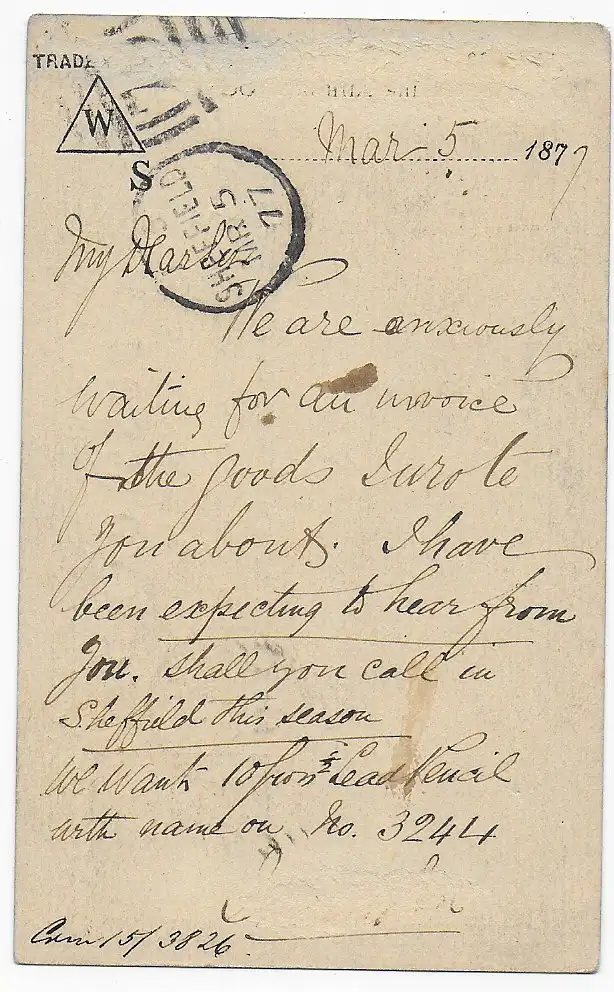 TRADE
W
S
Mar 5 1877
SHEFFIELD
MR 5
77
My Dear
We are anxiously
waiting for an invoice
of the goods I wrote
you about. I have
been expecting to hear from
you. shall you call in
Sheffield this season
We want 10 Lead Pencil
with name on No. 3244
15/3826